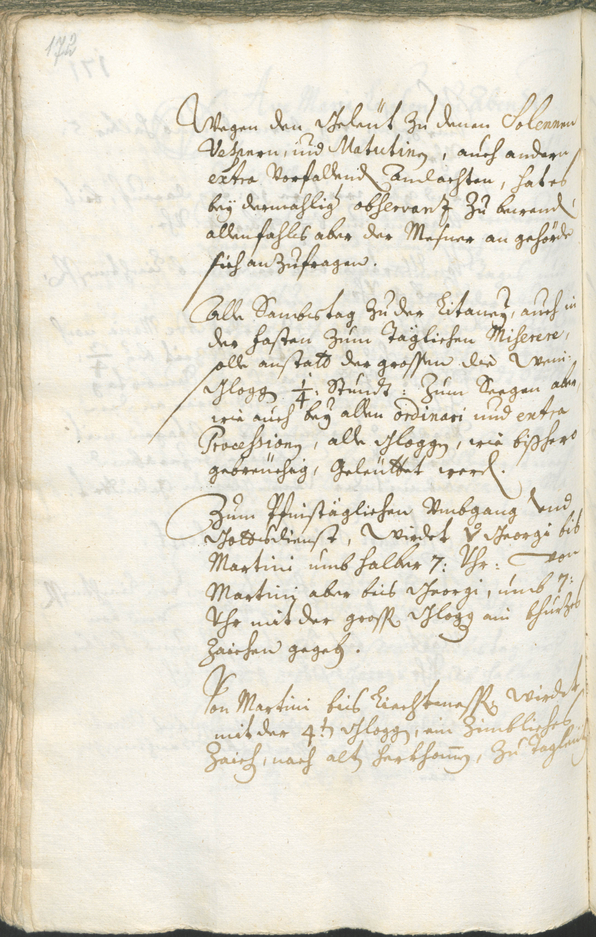 172
Wegen den Geleüt zu denen Solennen
Vespern, und Matutin, auch andern
extra vorfallend andachten, hat es
bey dermahlig observanz zu
allenfahls aber der Meßner an gehörd
sich anzufragen.
Alle Sambstag zu der Litaney, auch in
der fasten zum täglichen Miserere,
solle anstatt der grossen die
Glogg 1/4: Stundt: zum Seegen aber
wie auch bey allen ordinari und extra
Processionen, alle Gloggen, wie bißhero
gebreüchig, geleüttet werd.
Zum Pfinstäglichen Umbgang und
Gottsdienst, würdet v Georgi bis
Martini umb halber 7: Uhr: von
Martini aber bis Georgi, umb 7:
Uhr mit der gross Glogg ain khurzes
Zaichen gegeb.
Von Martini bis Liechtmess würdet
mit der 4t Glogg, ein Zimbliches
Zaich, nach alt herkhomen, zu Tagleit